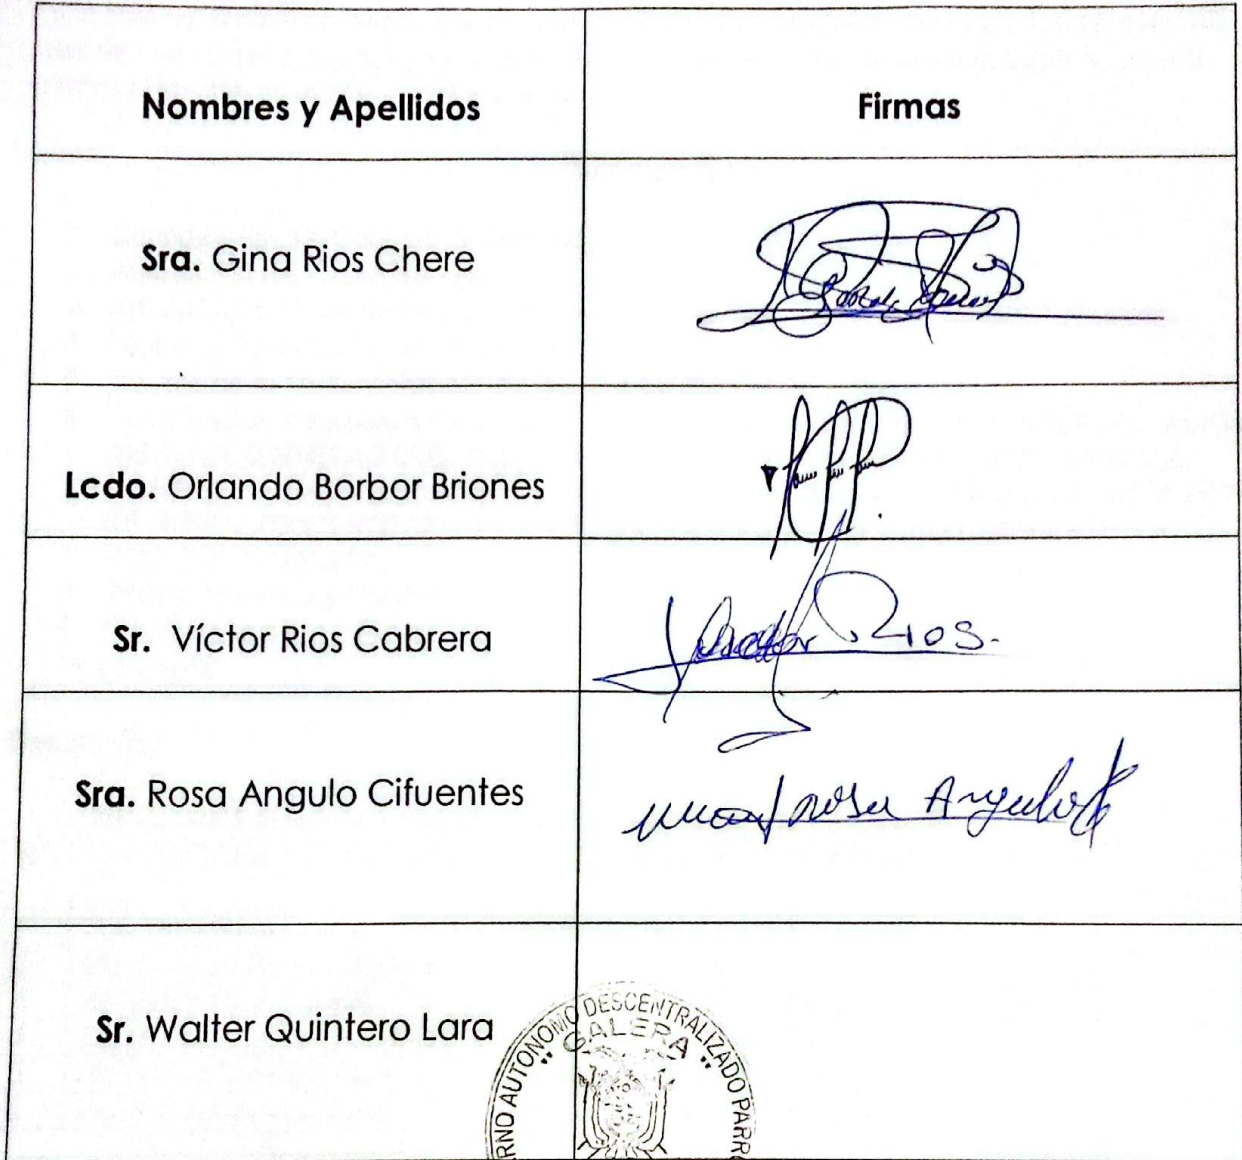 Nombres y Apellidos
Firmas
Sra. Gina Rios Chere
Lcdo. Orlando Borbor Briones
Sr. Víctor Rios Cabrera
Rios.
Sra. Rosa Angulo Cifuentes
rosa Angulo
Sr. Walter Quintero Lara
RNO AUTONOMO DESCENTRALIZADO PARR
" GALERA "